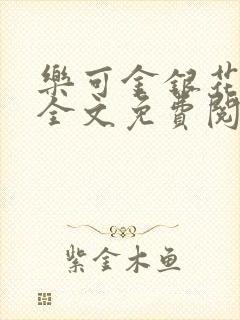 樂可金銀花
全文免費閱
紫金木鱼